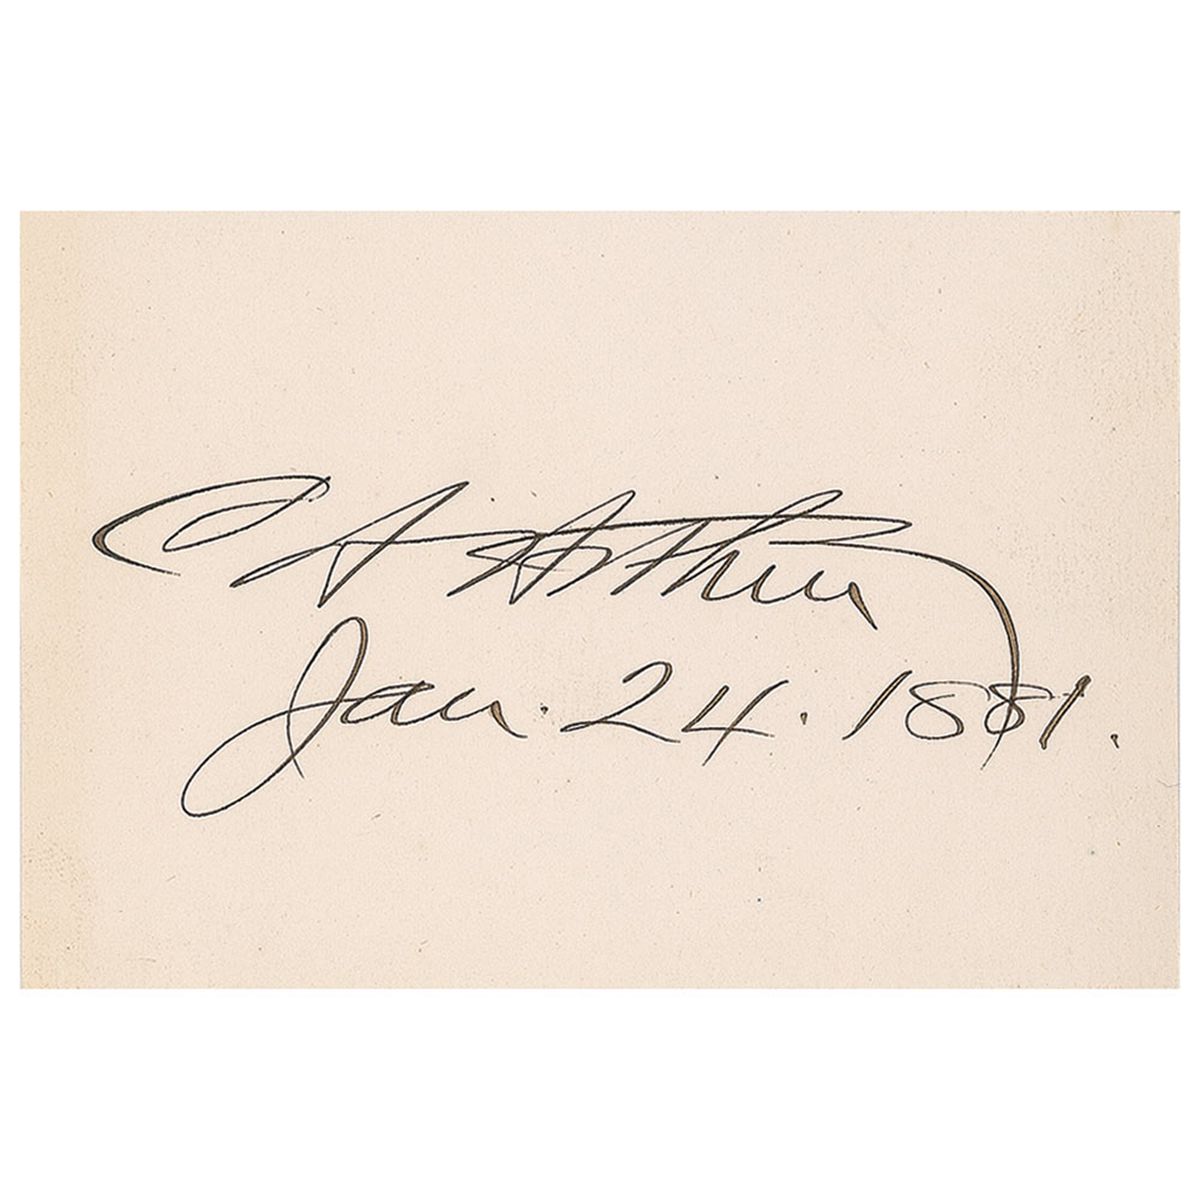 C A Arthur
Jan. 24. 1881.